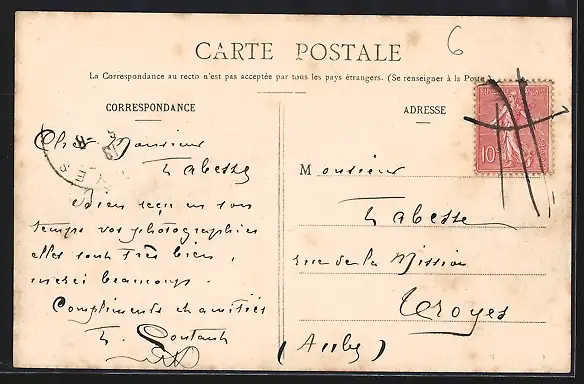 6
CARTE POSTALE
La Correspondance au recto n'est pas acceptée par tous les pays étrangers. (Se renseigner à la Poste.)
CORRESPONDANCE
Cher Monsieur
Labesse
Bien reçu en son
temps vos photographies
elles sont très bien,
merci beaucoup.
Compliments & amitiés
ADRESSE
10
Monsieur
Labesse
rue de la Mission
Troyes
(Aube)